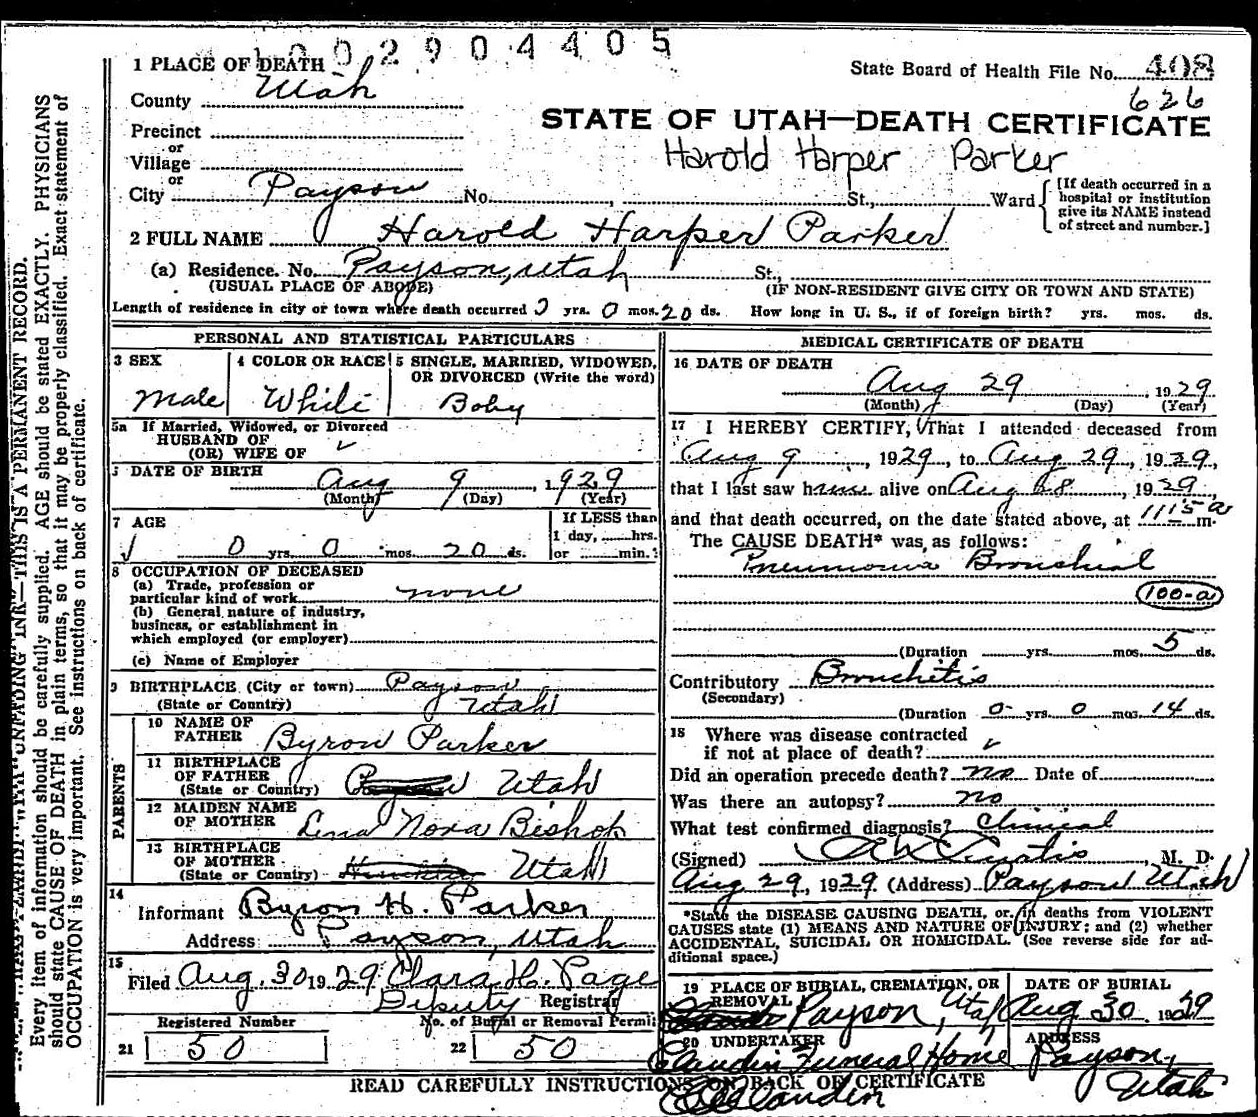 1002904405
1 PLACE OF DEATH
State Board of Health File No. 408
County Utah
626
STATE OF UTAH—DEATH CERTIFICATE
Precinct
or
Village
Harold Harper Parker
or
City Payson No. , St., Ward
[If death occurred in a
hospital or institution
give its NAME instead
of street and number.]
2 FULL NAME Harold Harper Parker
(a) Residence. No. Payson, Utah St.,
(USUAL PLACE OF ABODE) (IF NON-RESIDENT GIVE CITY OR TOWN AND STATE)
Length of residence in city or town where death occurred 0 yrs. 0 mos. 20 ds. How long in U. S., if of foreign birth? yrs. mos. ds.
PERSONAL AND STATISTICAL PARTICULARS
3 SEX
Male
4 COLOR OR RACE
White
5 SINGLE, MARRIED, WIDOWED,
OR DIVORCED (Write the word)
Boby
5a If Married, Widowed, or Divorced
HUSBAND OF
(OR) WIFE OF
DATE OF BIRTH Aug 9, 1929
(Month) (Day) (Year)
7 AGE
0 yrs. 0 mos. 20 ds.
If LESS than
1 day, hrs.
or min.
8 OCCUPATION OF DECEASED
(a) Trade, profession or
particular kind of work none
(b) General nature of industry,
business, or establishment in
which employed (or employer)
(c) Name of Employer
9 BIRTHPLACE (City or town) Payson
(State or Country) Utah
PARENTS
10 NAME OF
FATHER Byron Parker
11 BIRTHPLACE
OF FATHER
(State or Country) Utah
12 MAIDEN NAME
OF MOTHER Lena Nora Bishop
13 BIRTHPLACE
OF MOTHER
(State or Country) Utah
14
Informant Byron H. Parker
Address Payson, Utah
15
Filed Aug. 30 1929 Clara H. Page
Deputy Registrar
Registered Number No. of Burial or Removal Permit
21 50 22 50
MEDICAL CERTIFICATE OF DEATH
16 DATE OF DEATH
Aug 29, 1929
(Month) (Day) (Year)
17 I HEREBY CERTIFY, That I attended deceased from
Aug 9, 1929, to Aug 29, 1929,
that I last saw him alive on Aug 28, 1929,
and that death occurred, on the date stated above, at 1115 a m.
The CAUSE DEATH* was as follows:
Pneumonia Bronchial
100-a
(Duration yrs. mos. 5 ds.
Contributory Bronchitis
(Secondary)
(Duration 0 yrs. 0 mos. 14 ds.
18 Where was disease contracted
if not at place of death?
Did an operation precede death? no Date of
Was there an autopsy? no
What test confirmed diagnosis? Clinical
(Signed) Curtis, M. D.
Aug 29, 1929. (Address) Payson Utah
*State the DISEASE CAUSING DEATH, or, in deaths from VIOLENT
CAUSES state (1) MEANS AND NATURE OF INJURY; and (2) whether
ACCIDENTAL, SUICIDAL OR HOMICIDAL. (See reverse side for ad-
ditional space.)
19 PLACE OF BURIAL, CREMATION, OR
REMOVAL
Payson, Utah
DATE OF BURIAL
Aug 30 1929
20 UNDERTAKER
Claudin Funeral Home
ADDRESS
Payson,
Utah
READ CAREFULLY INSTRUCTIONS ON BACK OF CERTIFICATE
Claudin
THIS IS A PERMANENT RECORD.
Every item of information should be carefully supplied. AGE should be stated EXACTLY. PHYSICIANS
should state CAUSE OF DEATH in plain terms, so that it may be properly classified. Exact statement of
OCCUPATION is very important. See instructions on back of certificate.